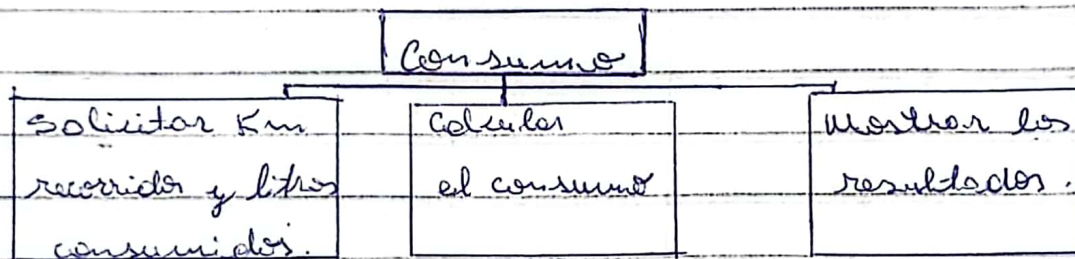 Consumo
Solicitar Km
recorridos y litros
consumidos.
Calcular
el consumo
Mostrar los
resultados.